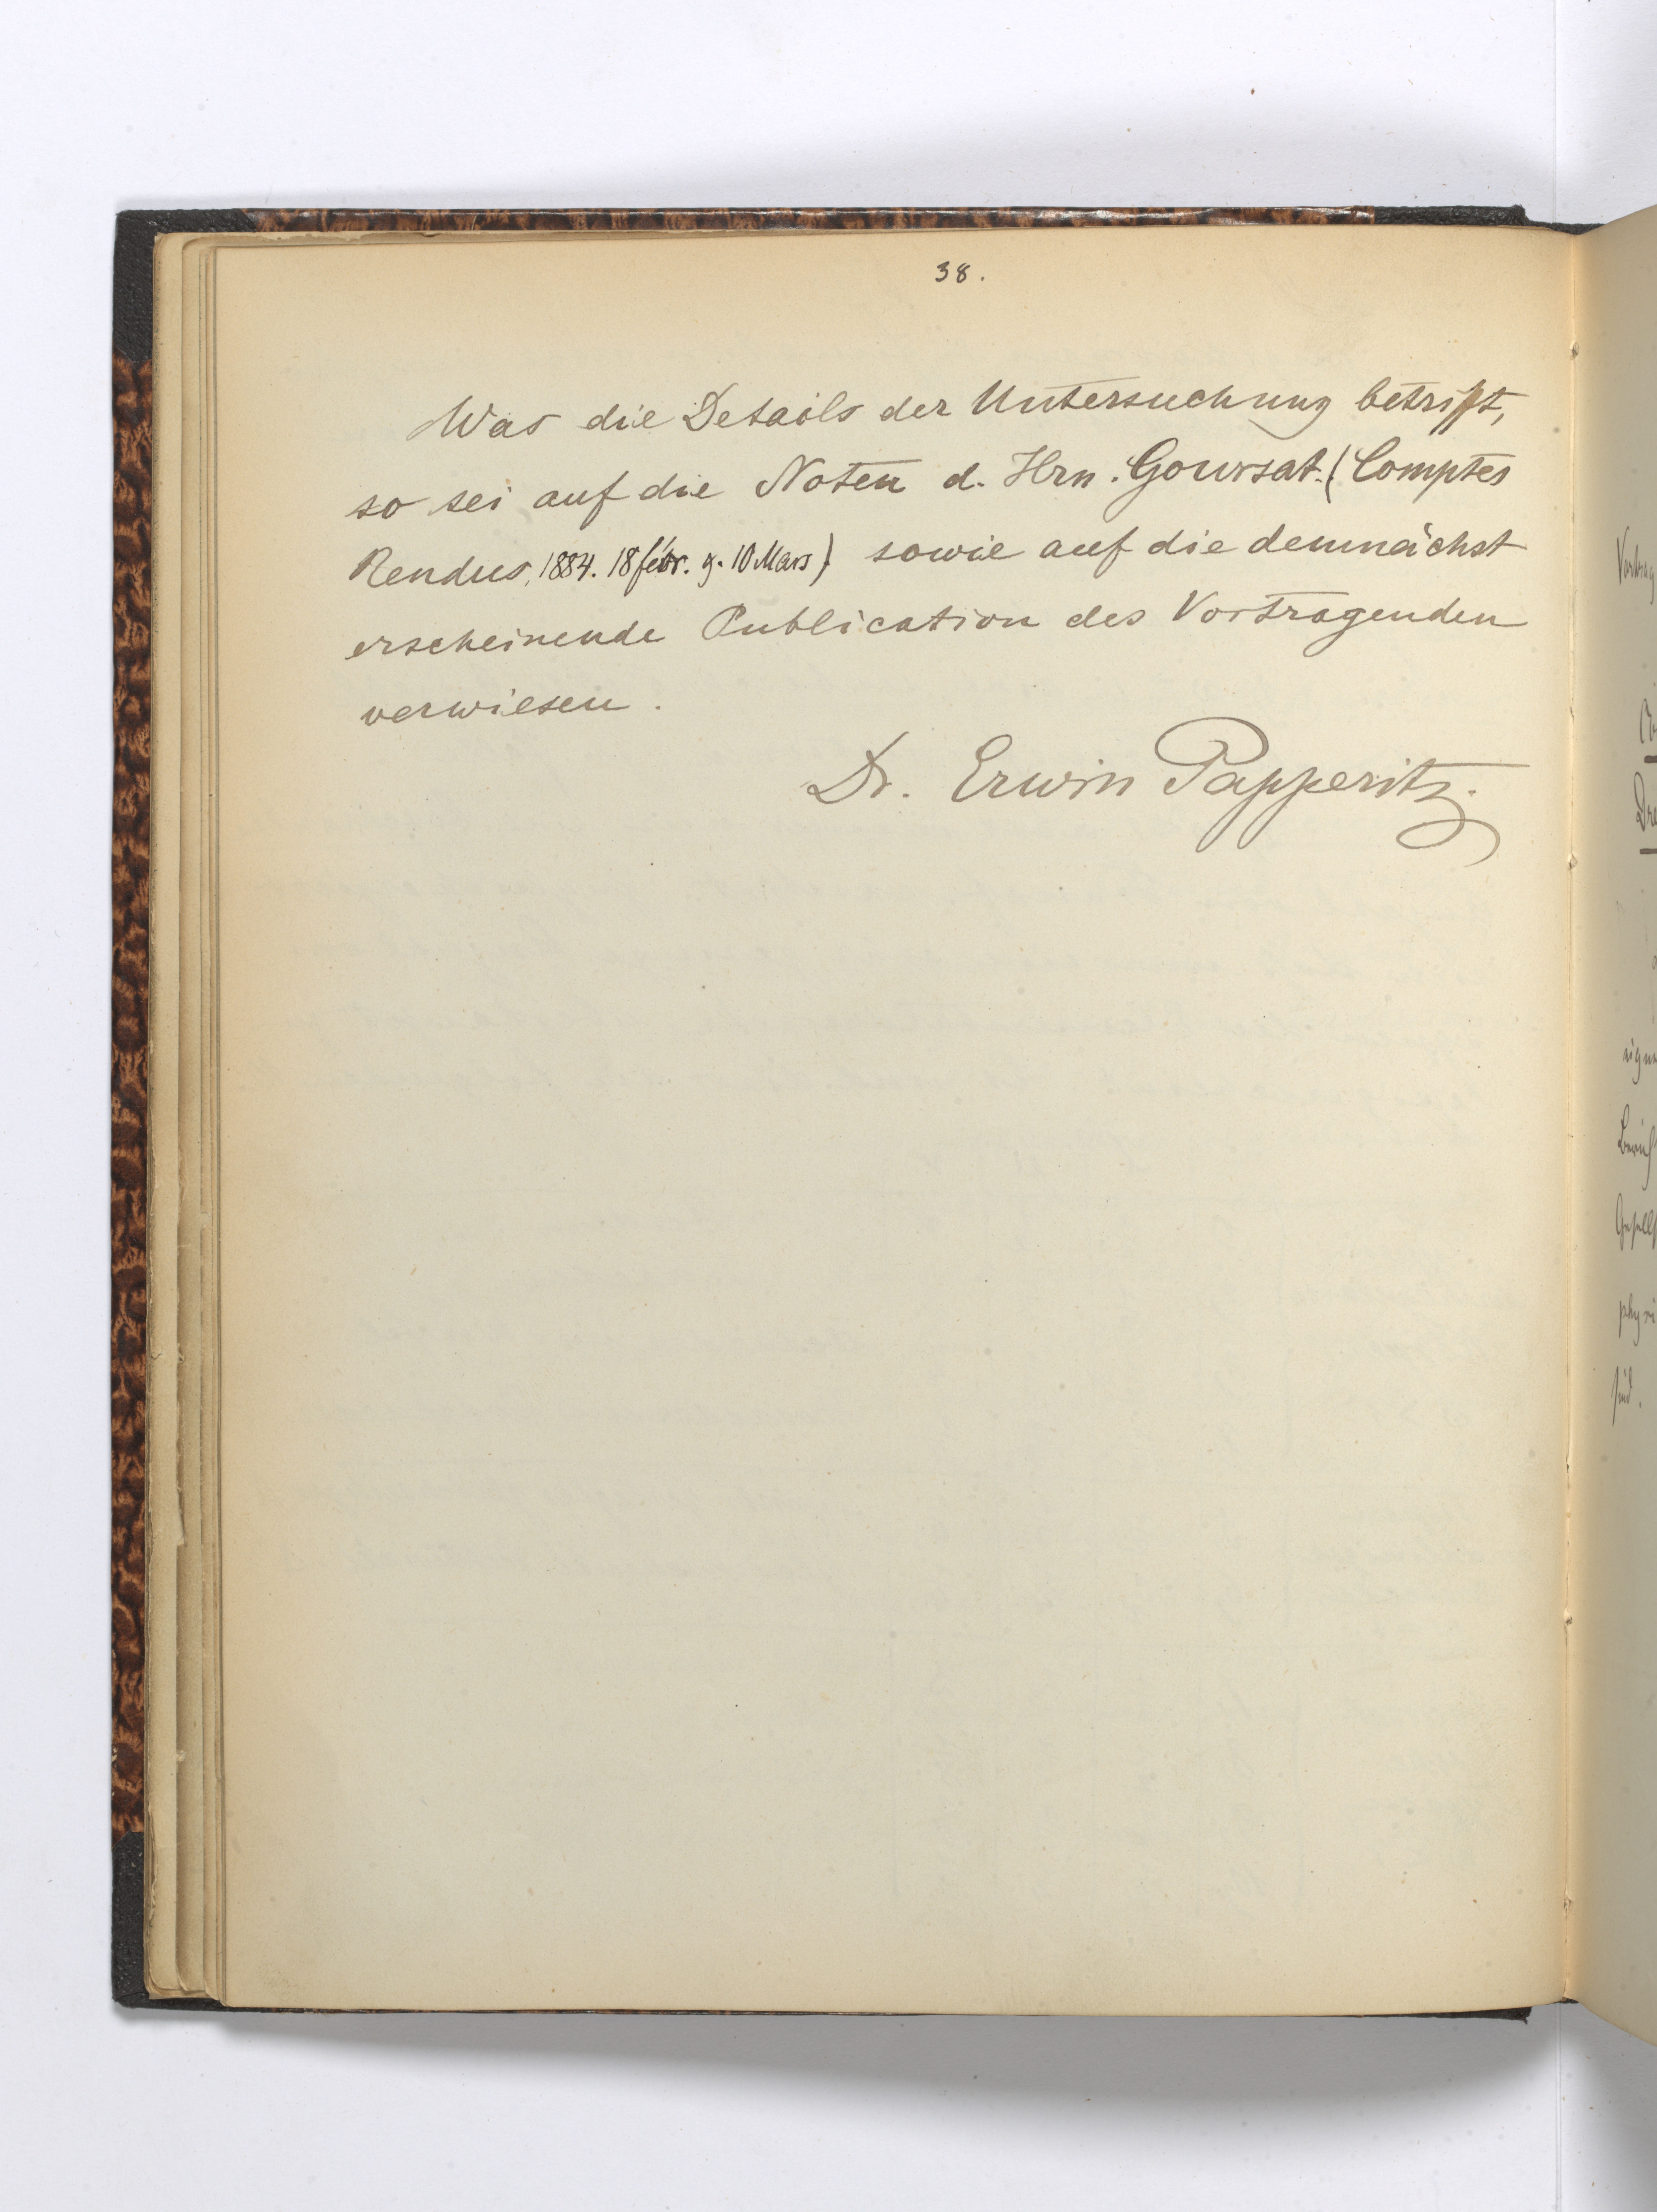 38.
Was die Details der Untersuchung betrifft,
so sei auf die Noten d. Hrn. Goursat. (Comptes
Rendus, 1884. 18 févr. & 10 Mars) sowie auf die demnächst
erscheinende Publication des Vortragenden
verwiesen.
Dr. Erwin Papperitz.